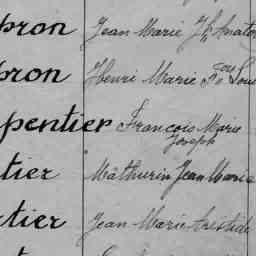 pron Jean Marie Jh Anato
pron Henri Marie Fois Loui
pentier François Marie
Joseph
tier Mathurin Jean Marie
tier Jean Marie Aristide